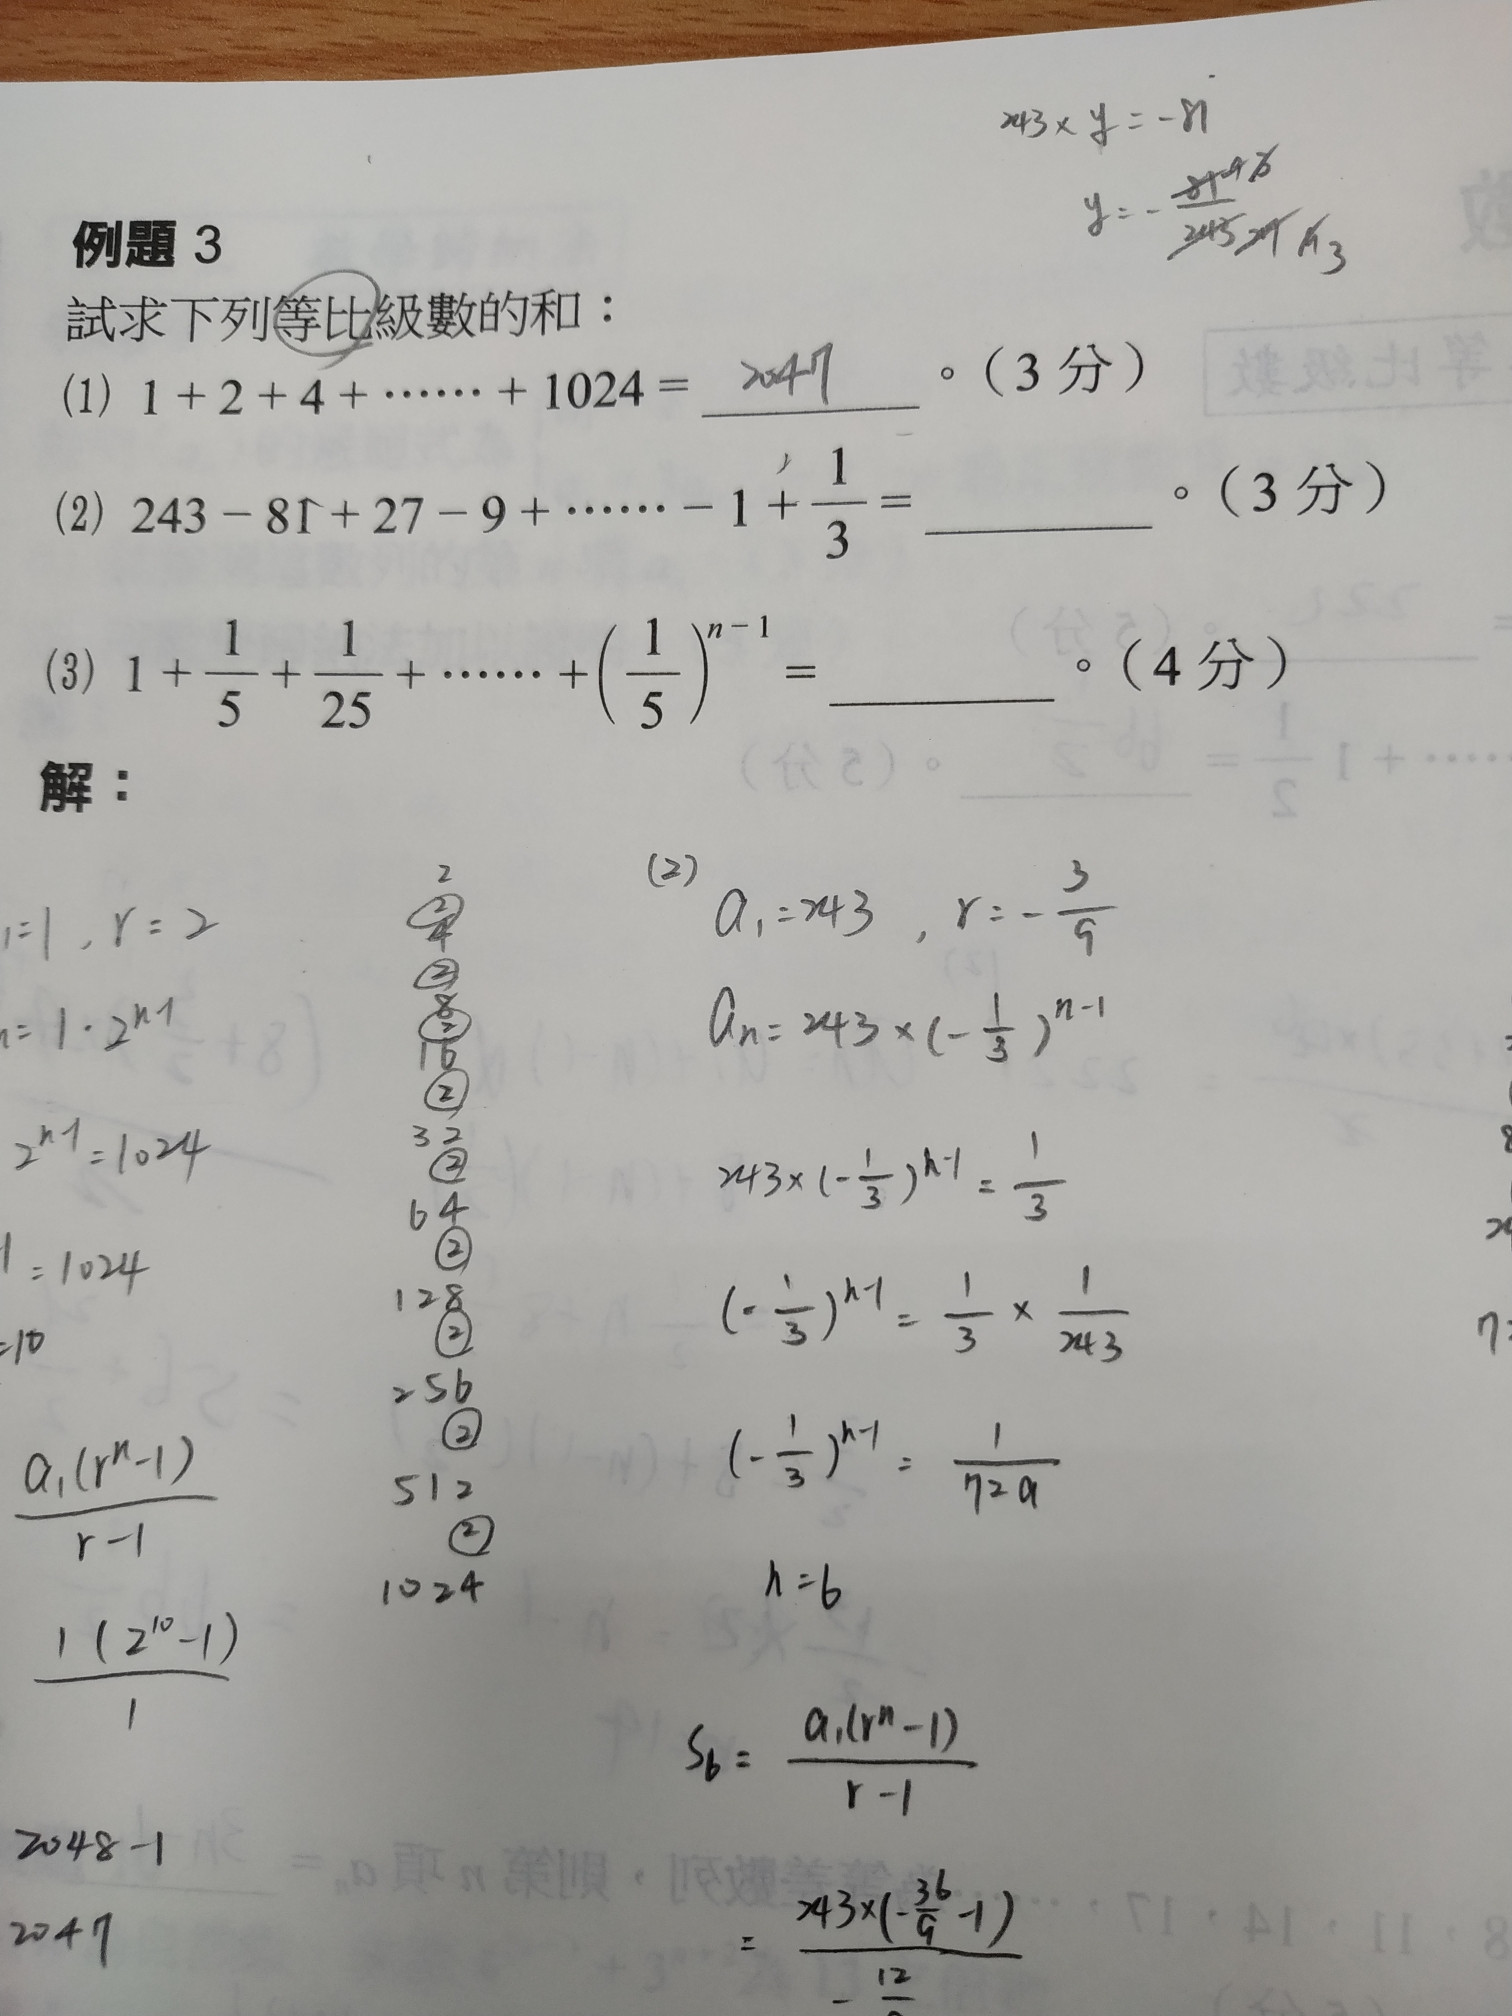 243 × y = -81
y = - 81/243 3
例題 3
試求下列等比級數的和：
(1) 1 + 2 + 4 + …… + 1024 = 2047 。（3 分）
(2) 243 − 81 + 27 − 9 + …… − 1 + 1/3 = ______ 。（3 分）
(3) 1 + 1/5 + 1/25 + …… + (1/5)^(n−1) = ______ 。（4 分）
解：
=1 , r = 2
= 1 · 2^(n-1)
2^(n-1) = 1024
= 1024
=10
a₁(rⁿ-1)/(r-1)
1(2^10-1)/1
2048-1
2047
2
②
4
②
8
②
16
②
32
②
64
②
128
②
256
②
512
②
1024
(2) a₁ = 243 , r = - 3/9
aₙ = 243 × (- 1/3)^(n-1)
243 × (- 1/3)^(n-1) = 1/3
(- 1/3)^(n-1) = 1/3 × 1/243
(- 1/3)^(n-1) = 1/729
n = 6
S₆ = a₁(rⁿ-1)/(r-1)